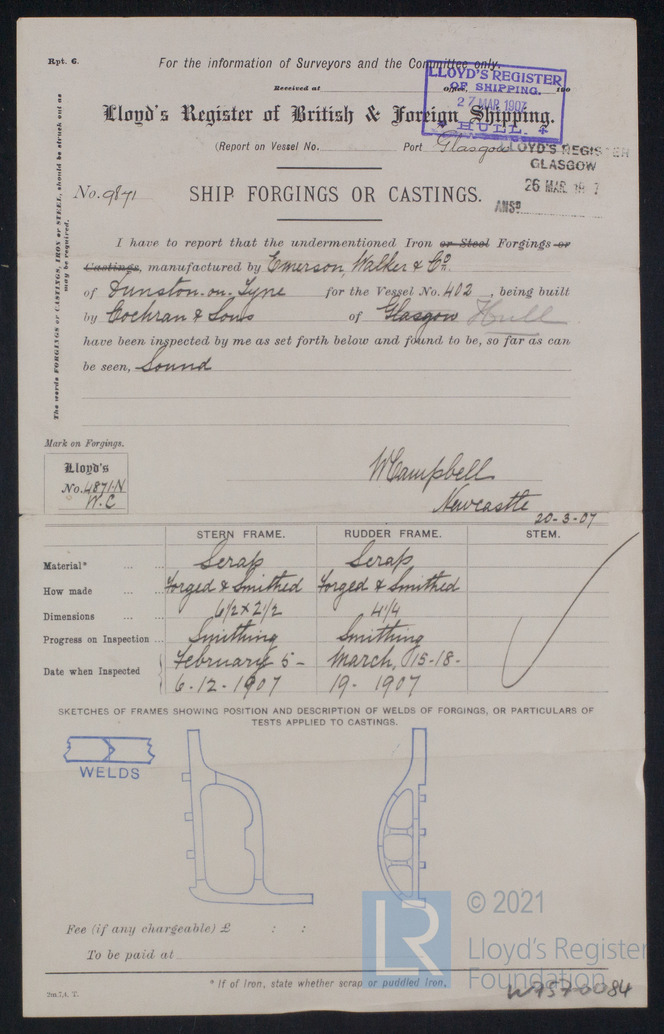 Rpt. 6.
For the information of Surveyors and the Committee only.
Received at Office, 190
LLOYD'S REGISTER
OF SHIPPING.
27 MAR 1907
* HULL. *
Lloyd's Register of British & Foreign Shipping.
(Report on Vessel No. Port Glasgow
LLOYD'S REGISTER
GLASGOW
26 MAR. 19 7
ANSD.
No. 9871
SHIP FORGINGS OR CASTINGS.
The words FORGINGS or CASTINGS, IRON or STEEL, should be struck out as
may be required.
I have to report that the undermentioned Iron or Steel Forgings or
Castings, manufactured by Emerson, Walker & Co.
of Dunston-on-Tyne for the Vessel No. 402, being built
by Cochran & Sons of Glasgow Hull
have been inspected by me as set forth below and found to be, so far as can
be seen, Sound
Mark on Forgings.
Lloyd's
No. 4871.N
W.C
W Campbell
Newcastle
20-3-07
STERN FRAME. RUDDER FRAME. STEM.
Material* ... ... Scrap Scrap
How made ... ... Forged & Smithed Forged & Smithed
Dimensions ... ... 6 1/2 x 2 1/2 4 1/4
Progress on Inspection ... Smithing Smithing
Date when Inspected February 5- March, 15-18-
6-12-1907 19- 1907
SKETCHES OF FRAMES SHOWING POSITION AND DESCRIPTION OF WELDS OF FORGINGS, OR PARTICULARS OF
TESTS APPLIED TO CASTINGS.
WELDS
Fee (if any chargeable) £ : :
To be paid at
* If of Iron, state whether scrap or puddled Iron.
2m.7,4. T.
LR
© 2021
Lloyd's Register
Foundation
W957-0084